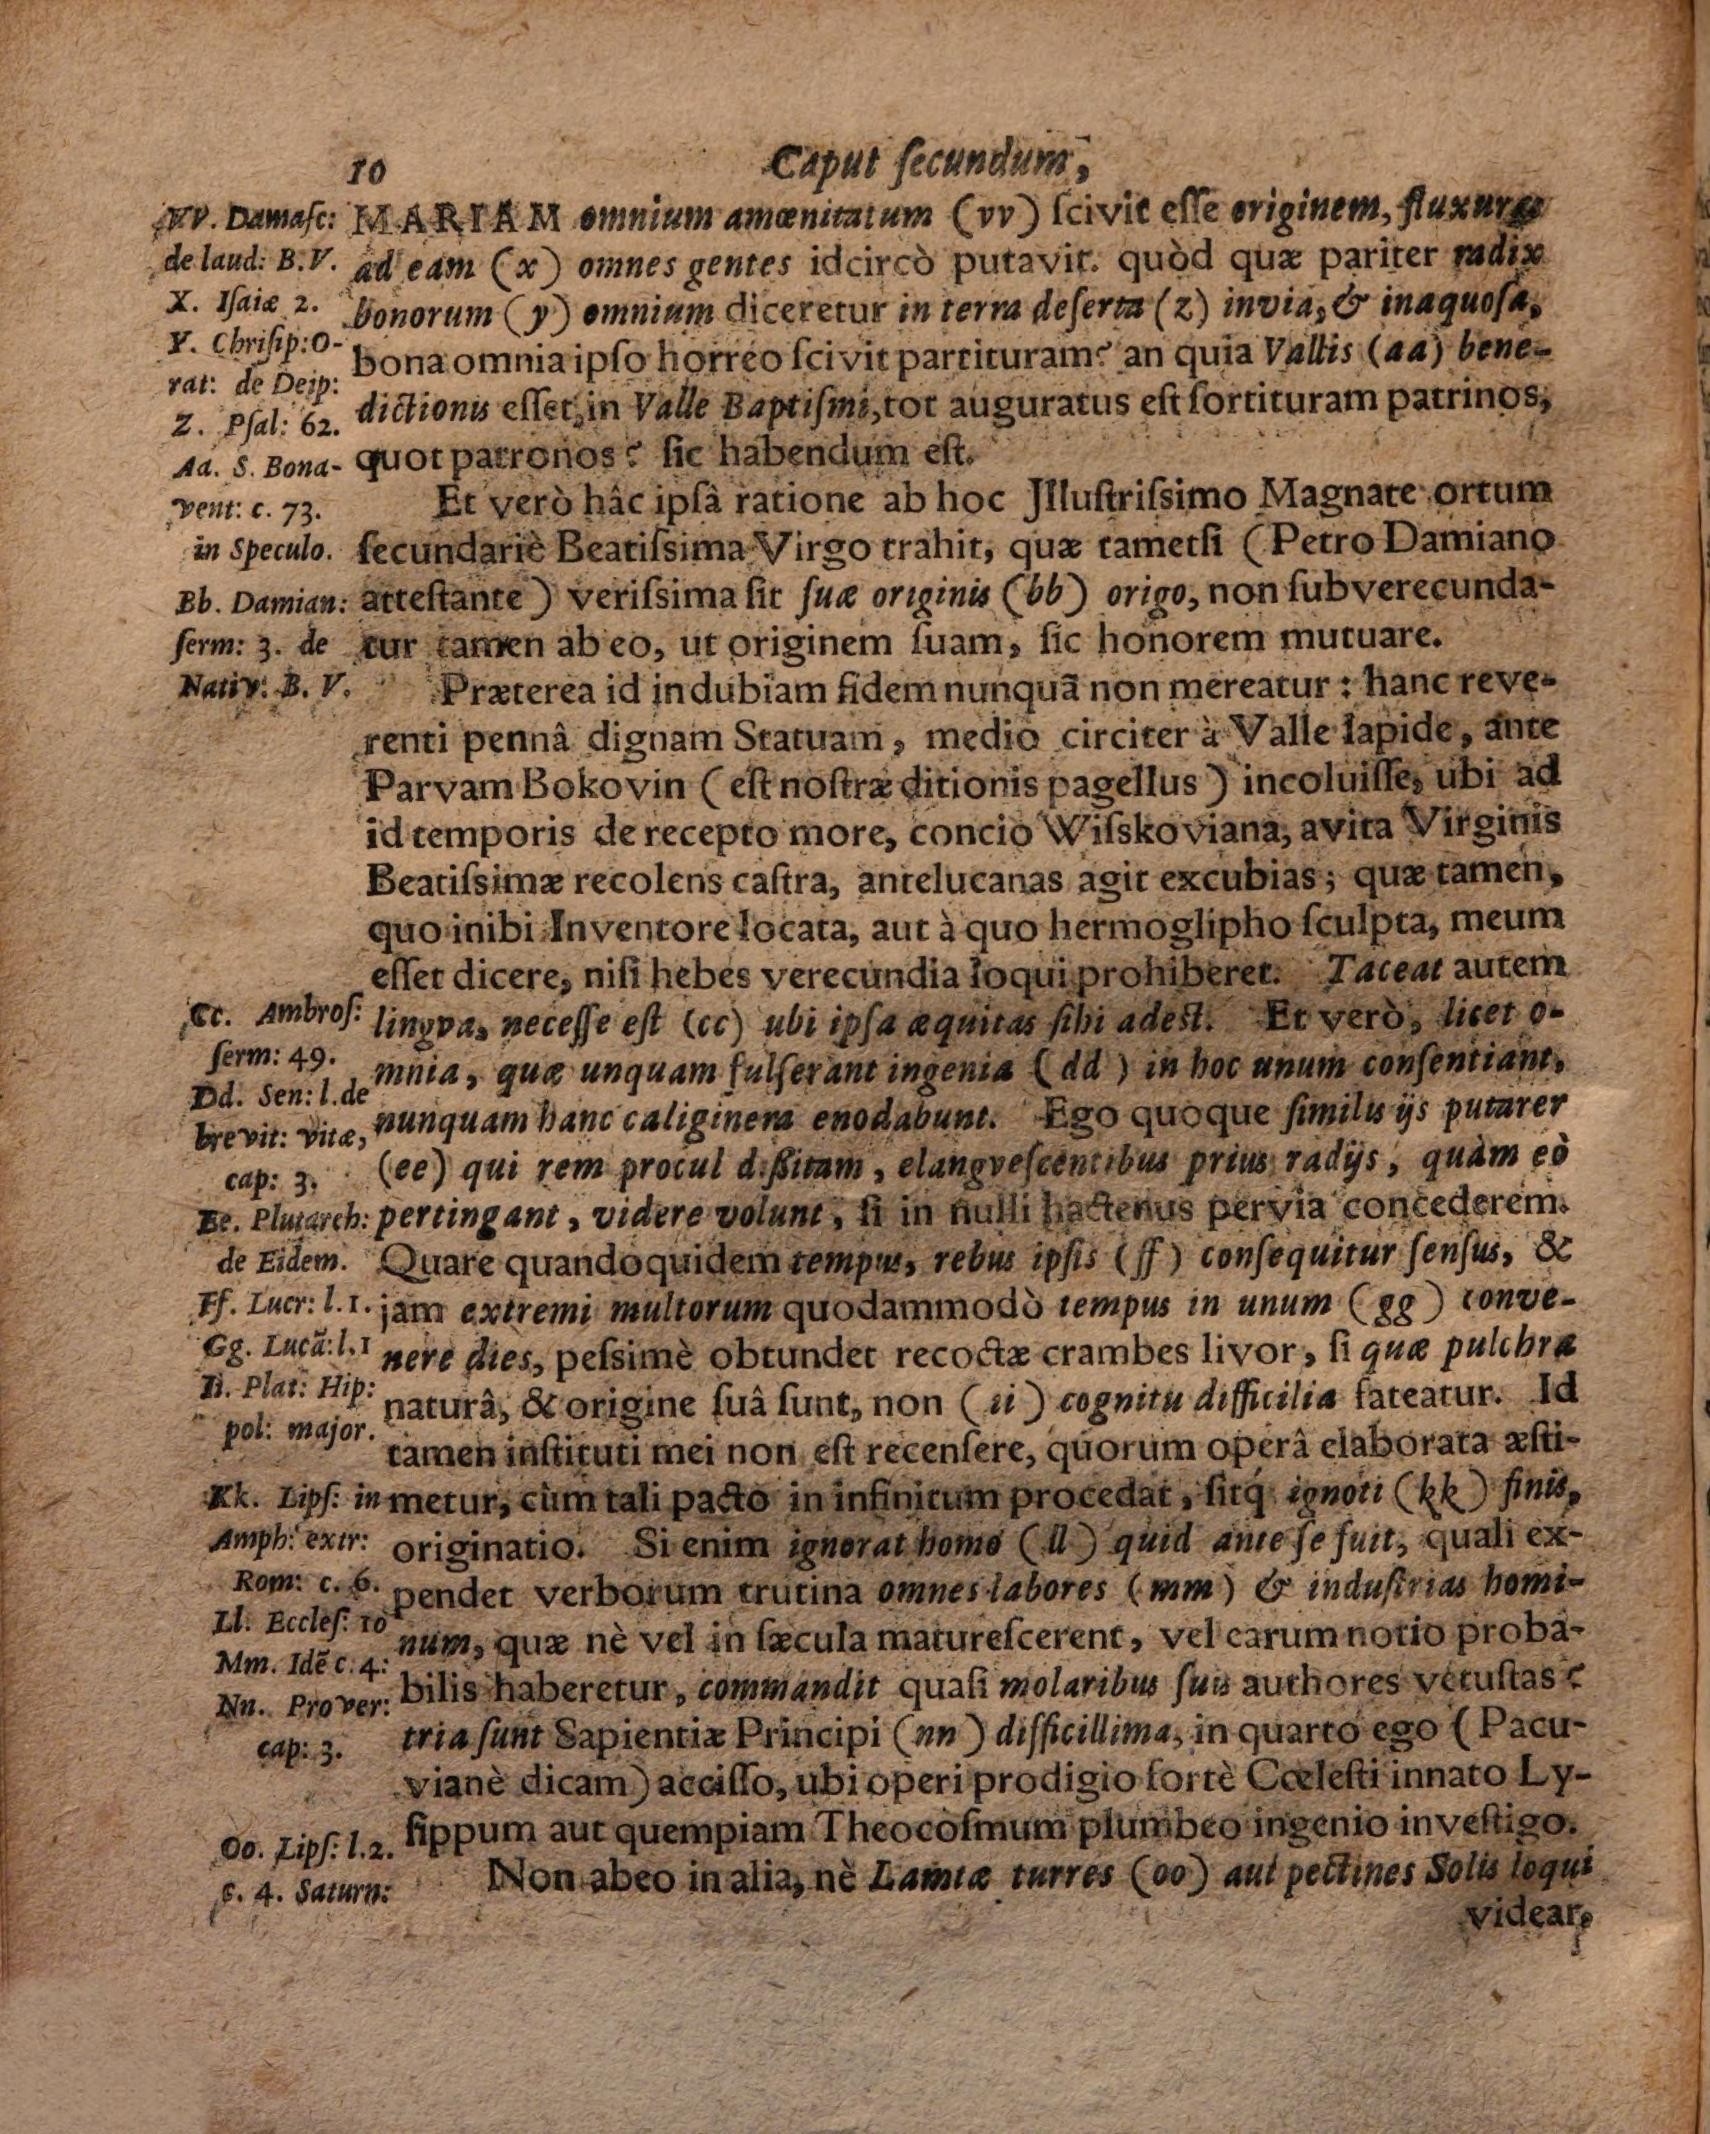 10
Caput ſecundum,
MARIAM omnium amœnitatum (vv) ſcivit eſſe originem, fluxuras
ad eam (x) omnes gentes idcircò putavit. quòd quæ pariter radix
bonorum (y) omnium diceretur in terra deſerta (z) invia, & inaquoſa,
bona omnia ipſo horreo ſcivit partituram? an quia Vallis (aa) bene-
dictionis eſſet, in Valle Baptiſmi, tot auguratus eſt ſortituram patrinos,
quot patronos? ſic habendum eſt.
Et verò hâc ipſâ ratione ab hoc Jlluſtriſsimo Magnate ortum
ſecundariè Beatiſsima Virgo trahit, quæ tametſi (Petro Damiano
atteſtante) veriſsima ſit ſuæ originis (bb) origo, non ſubverecunda-
tur tamen ab eo, ut originem ſuam, ſic honorem mutuare.
Præterea id indubiam fidem nunquã non mereatur: hanc reve-
renti pennâ dignam Statuam, medio circiter à Valle lapide, ante
Parvam Bokovin (eſt noſtræ ditionis pagellus) incoluiſſe, ubi ad
id temporis de recepto more, concio Wiſskoviana, avita Virginis
Beatiſsimæ recolens caſtra, antelucanas agit excubias; quæ tamen,
quo inibi Inventore locata, aut à quo hermoglipho ſculpta, meum
eſſet dicere, niſi hebes verecundia loqui prohiberet. Taceat autem
lingva, neceſſe eſt (cc) ubi ipſa æquitas ſibi adeſt. Et verò, licet o-
mnia, quæ unquam fulſerant ingenia (dd) in hoc unum conſentiant,
nunquam hanc caliginem enodabunt. Ego quoque ſimilis ijs putarer
(ee) qui rem procul diſsitam, elangveſcentibus prius radijs, quàm eò
pertingant, videre volunt, ſi in nulli hactenus pervia concederem.
Quare quandoquidem tempus, rebus ipſis (ff) conſequitur ſenſus, &
jam extremi multorum quodammodò tempus in unum (gg) conve-
nere dies, peſsimè obtundet recoctæ crambes livor, ſi quæ pulchra
naturâ, & origine ſuâ ſunt, non (ii) cognitu difficilia fateatur. Id
tamen inſtituti mei non eſt recenſere, quorum operâ elaborata æſti-
metur, cùm tali pacto in infinitum procedat, ſitq́ ignoti (kk) finis,
originatio. Si enim ignorat homo (ll) quid ante ſe fuit, quali ex-
pendet verborum trutina omnes labores (mm) & induſtrias homi-
num, quæ nè vel in ſæcula matureſcerent, vel earum notio proba-
bilis haberetur, commandit quaſi molaribus ſuis authores vetuſtas?
tria ſunt Sapientiæ Principi (nn) difficillima, in quarto ego (Pacu-
vianè dicam) acciſſo, ubi operi prodigio fortè Cœleſti innato Ly-
ſippum aut quempiam Theocòſmum plumbeo ingenio inveſtigo.
Non abeo in alia, nè Lamiæ turres (oo) aut pectines Solis loqui
videar,
VV. Damaſc:
de laud: B.V.
X. Iſaiæ 2.
Y. Chriſip: O-
rat: de Deip:
Z. Pſal: 62.
Aa. S. Bona-
vent: c. 73.
in Speculo.
Bb. Damian:
ſerm: 3. de
Nativ: B. V.
Cc. Ambroſ:
ſerm: 49.
Dd. Sen: l. de
brevit: vitæ,
cap: 3.
Ee. Plutarch:
de Eidem.
Ff. Lucr: l. 1.
Gg. Lucã: l. 1
Ii. Plat: Hip:
pol: major.
Kk. Lipſ: in
Amph: extr:
Rom: c. 6.
Ll. Eccleſ: 10
Mm. Idẽ c. 4:
Nn. Prover:
cap: 3.
Oo. Lipſ: l. 2.
c. 4. Saturn: